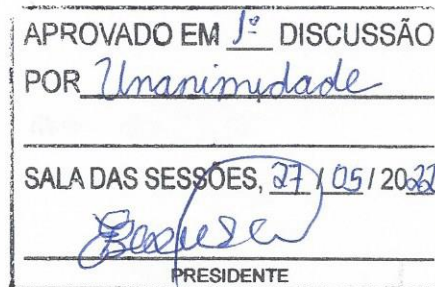 APROVADO EM 1ª DISCUSSÃO
POR Unanimidade
SALA DAS SESSÕES, 27 / 05 / 2022
PRESIDENTE